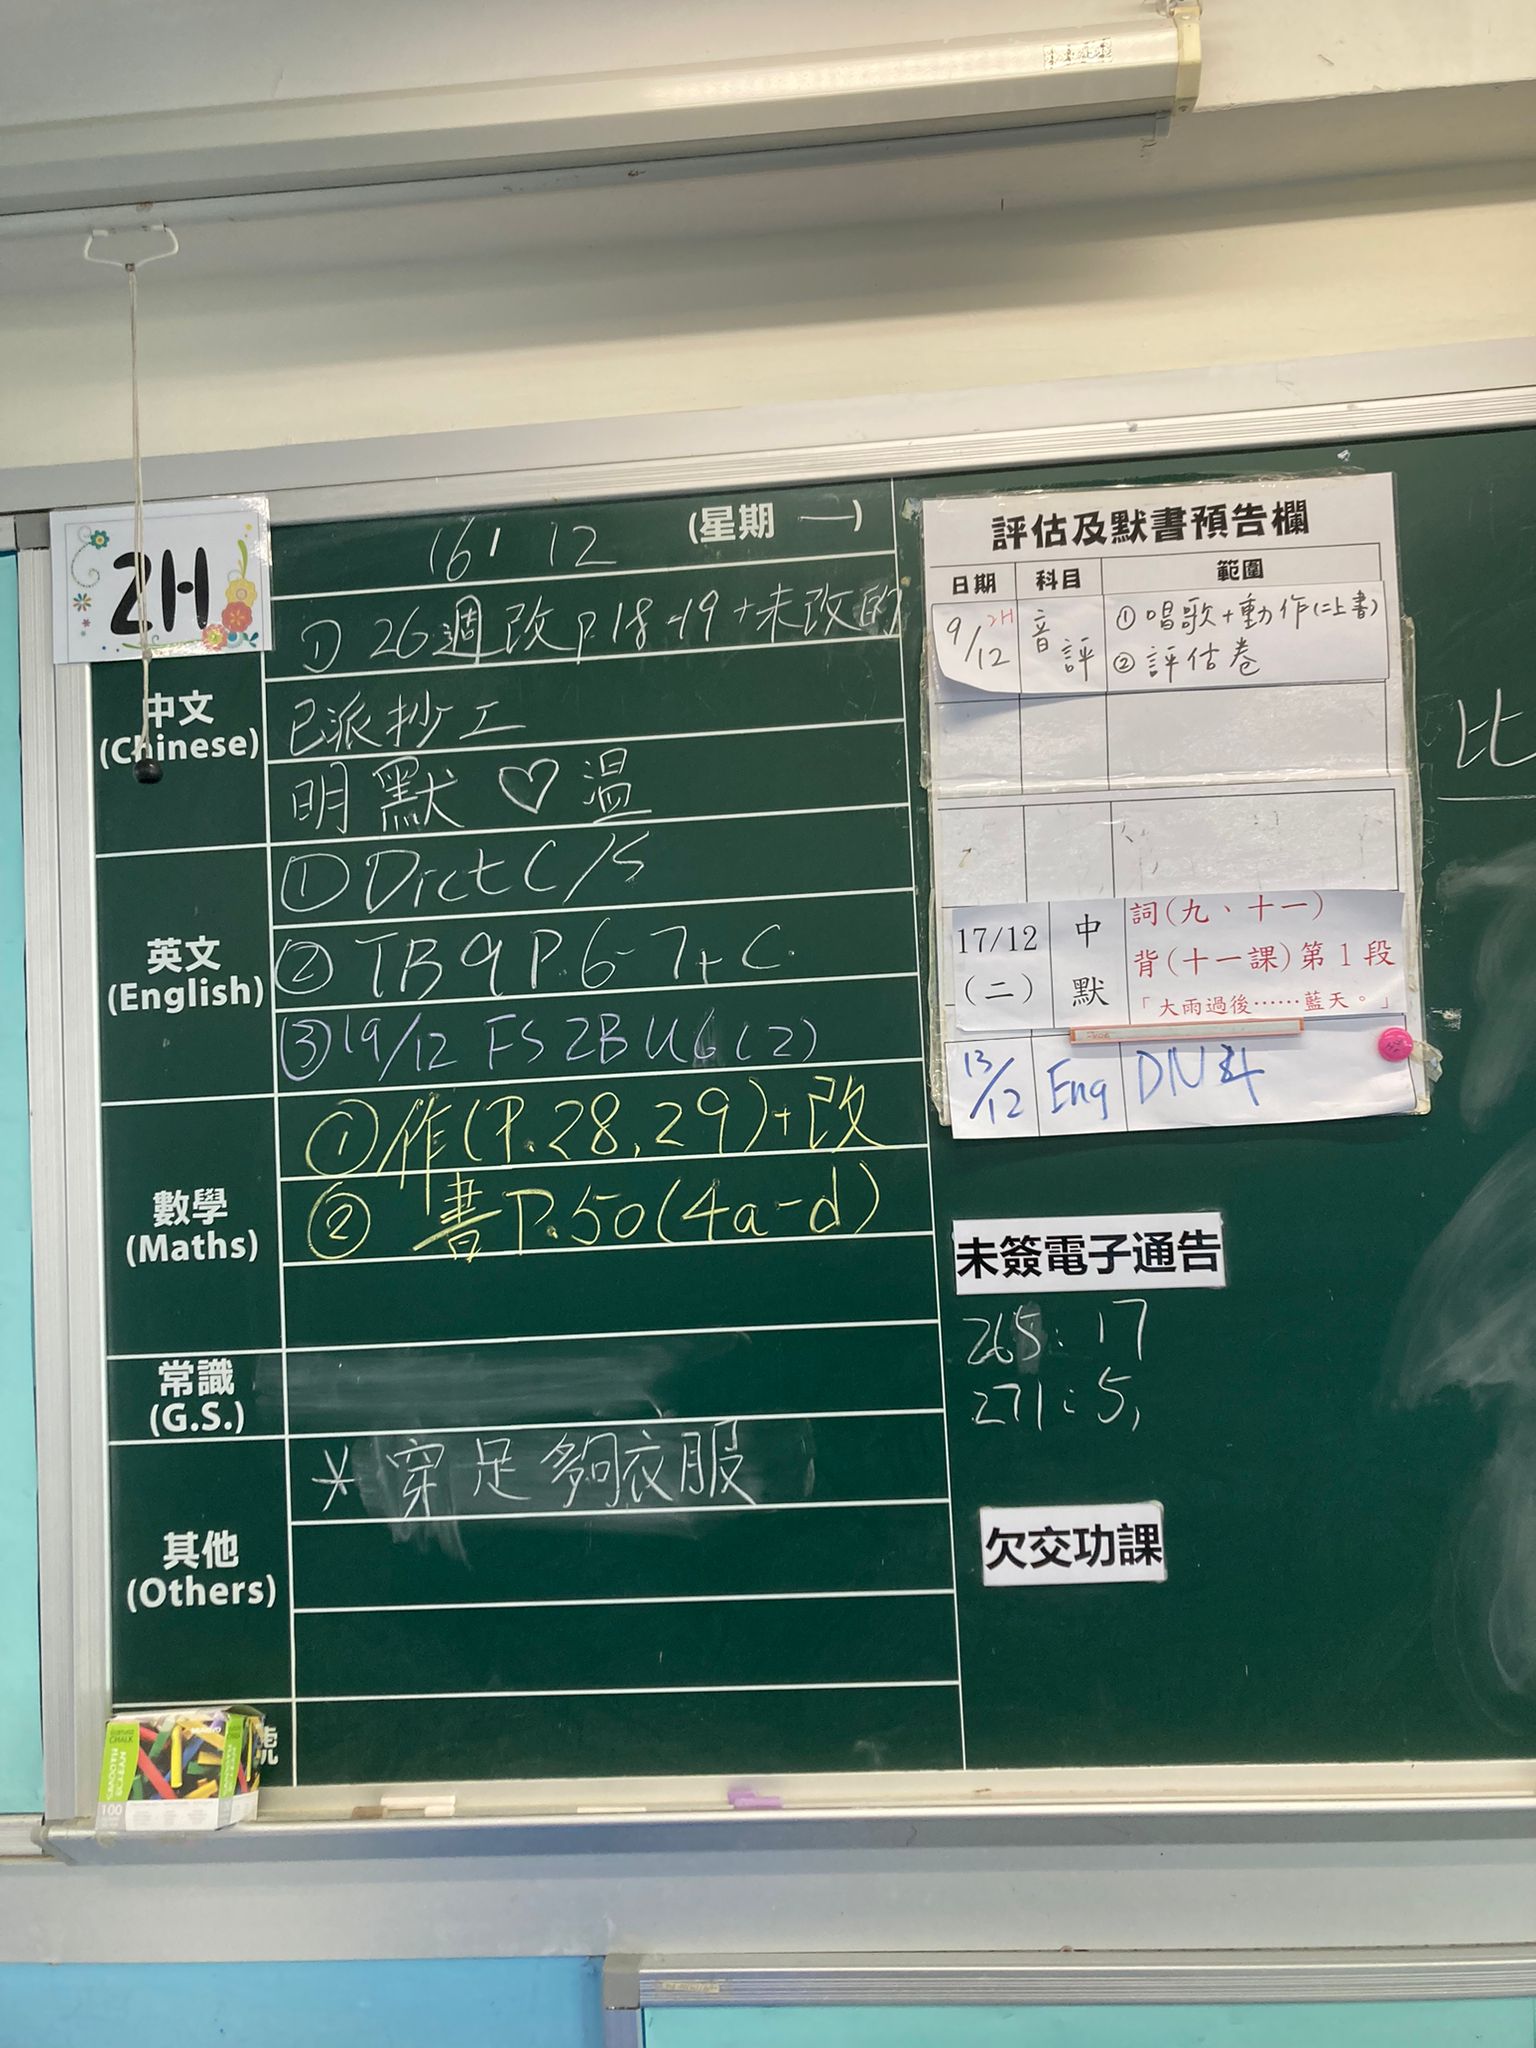 2H
16 / 12 (星期 一)
中文
(Chinese)
① 26週改 P.18-19 + 未改的
已派抄工
明默 ♡ 溫
英文
(English)
① Dict C/S
② TB9 P.6-7 + C
③ 19/12 FS 2B U6 (2)
數學
(Maths)
① 作(P.28,29)+改
② 書P.50(4a-d)
常識
(G.S.)
其他
(Others)
* 穿足夠衣服
評估及默書預告欄
日期 科目 範圍
9/12 2H 音評 ① 唱歌+動作(二上書)
② 評估卷
17/12 (二) 中默 詞(九、十一)
背(十一課)第1段
「大雨過後……藍天。」
13/12 Eng DN4
未簽電子通告
265: 17
271: 5,
欠交功課
比
CHALK
100